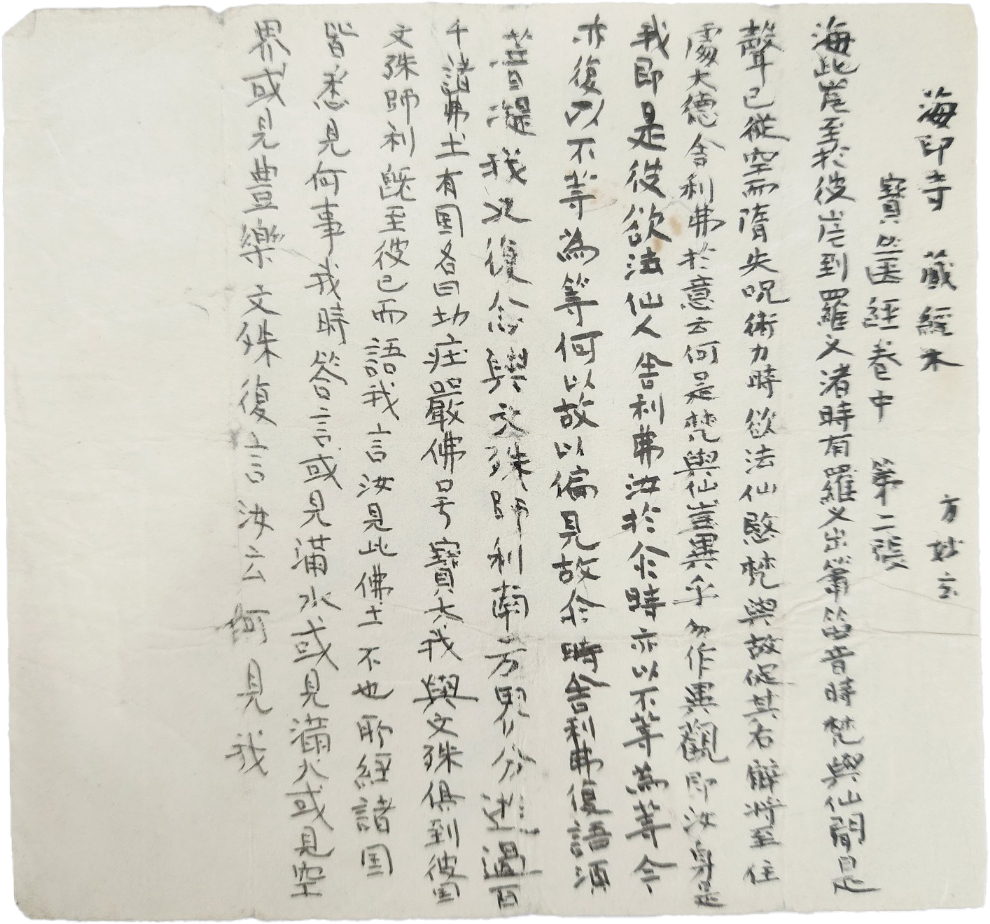 海印寺 藏經木
方妙玄
寶篋經卷中 第二張
海此岸至於彼岸到羅义渚時有羅义出箫笛音時梵與仙聞是
聲已從空而隋失呪術力時欲法仙愍梵與故促其右臂將至住
處大德舍利弗於意云何是梵與仙豈異乎勿作異觀即汝身是
我即是彼欲法仙人舍利弗汝於尒時亦以不等為等今
亦復以不等為等何以故以偏見故尒時舍利弗復語須
菩提我次復念與文殊師利南方界分遊過百
千諸佛土有国名曰功莊嚴佛号寶大我與文殊俱到彼国
文殊師利旣至彼已而語我言汝見此佛土不也所經諸国
皆悉見何事我時答言或見滿水或見滿火或見空
界或見豊樂文殊復言汝云何見我